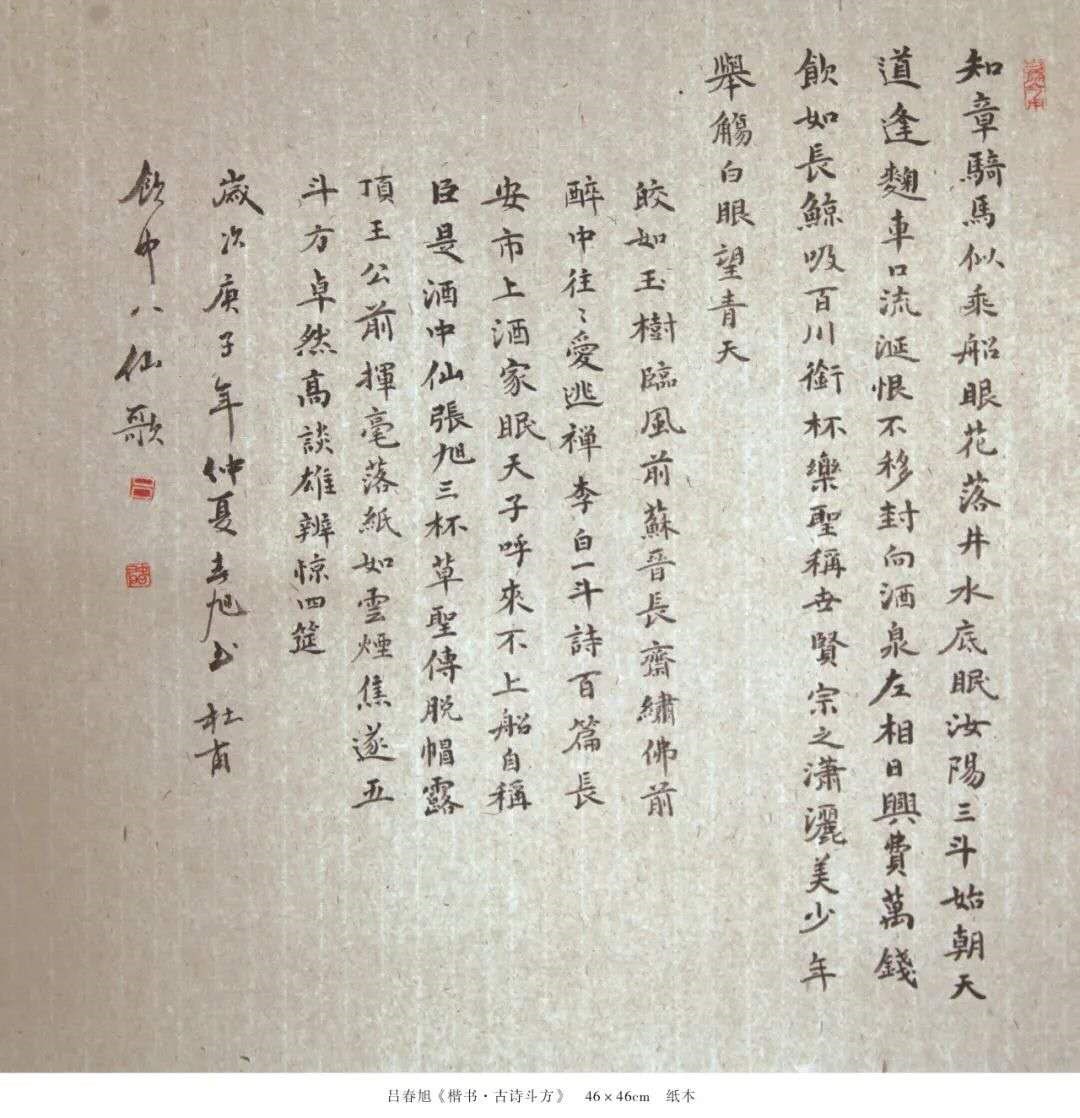 知章騎馬似乘船眼花落井水底眠汝陽三斗始朝天
道逢麴車口流涎恨不移封向酒泉左相日興費萬錢
飲如長鯨吸百川銜杯樂聖稱世賢宗之瀟灑美少年
舉觴白眼望青天
皎如玉樹臨風前蘇晉長齋繡佛前
醉中往〻愛逃禅李白一斗詩百篇長
安市上酒家眠天子呼來不上船自稱
臣是酒中仙張旭三杯草聖傳脱帽露
頂王公前揮毫落紙如雲煙焦遂五
斗方卓然高談雄辨惊四筵
歲次庚子年仲夏春旭书 杜甫
飲中八仙歌
吕春旭《楷书·古诗斗方》 46×46cm 纸木